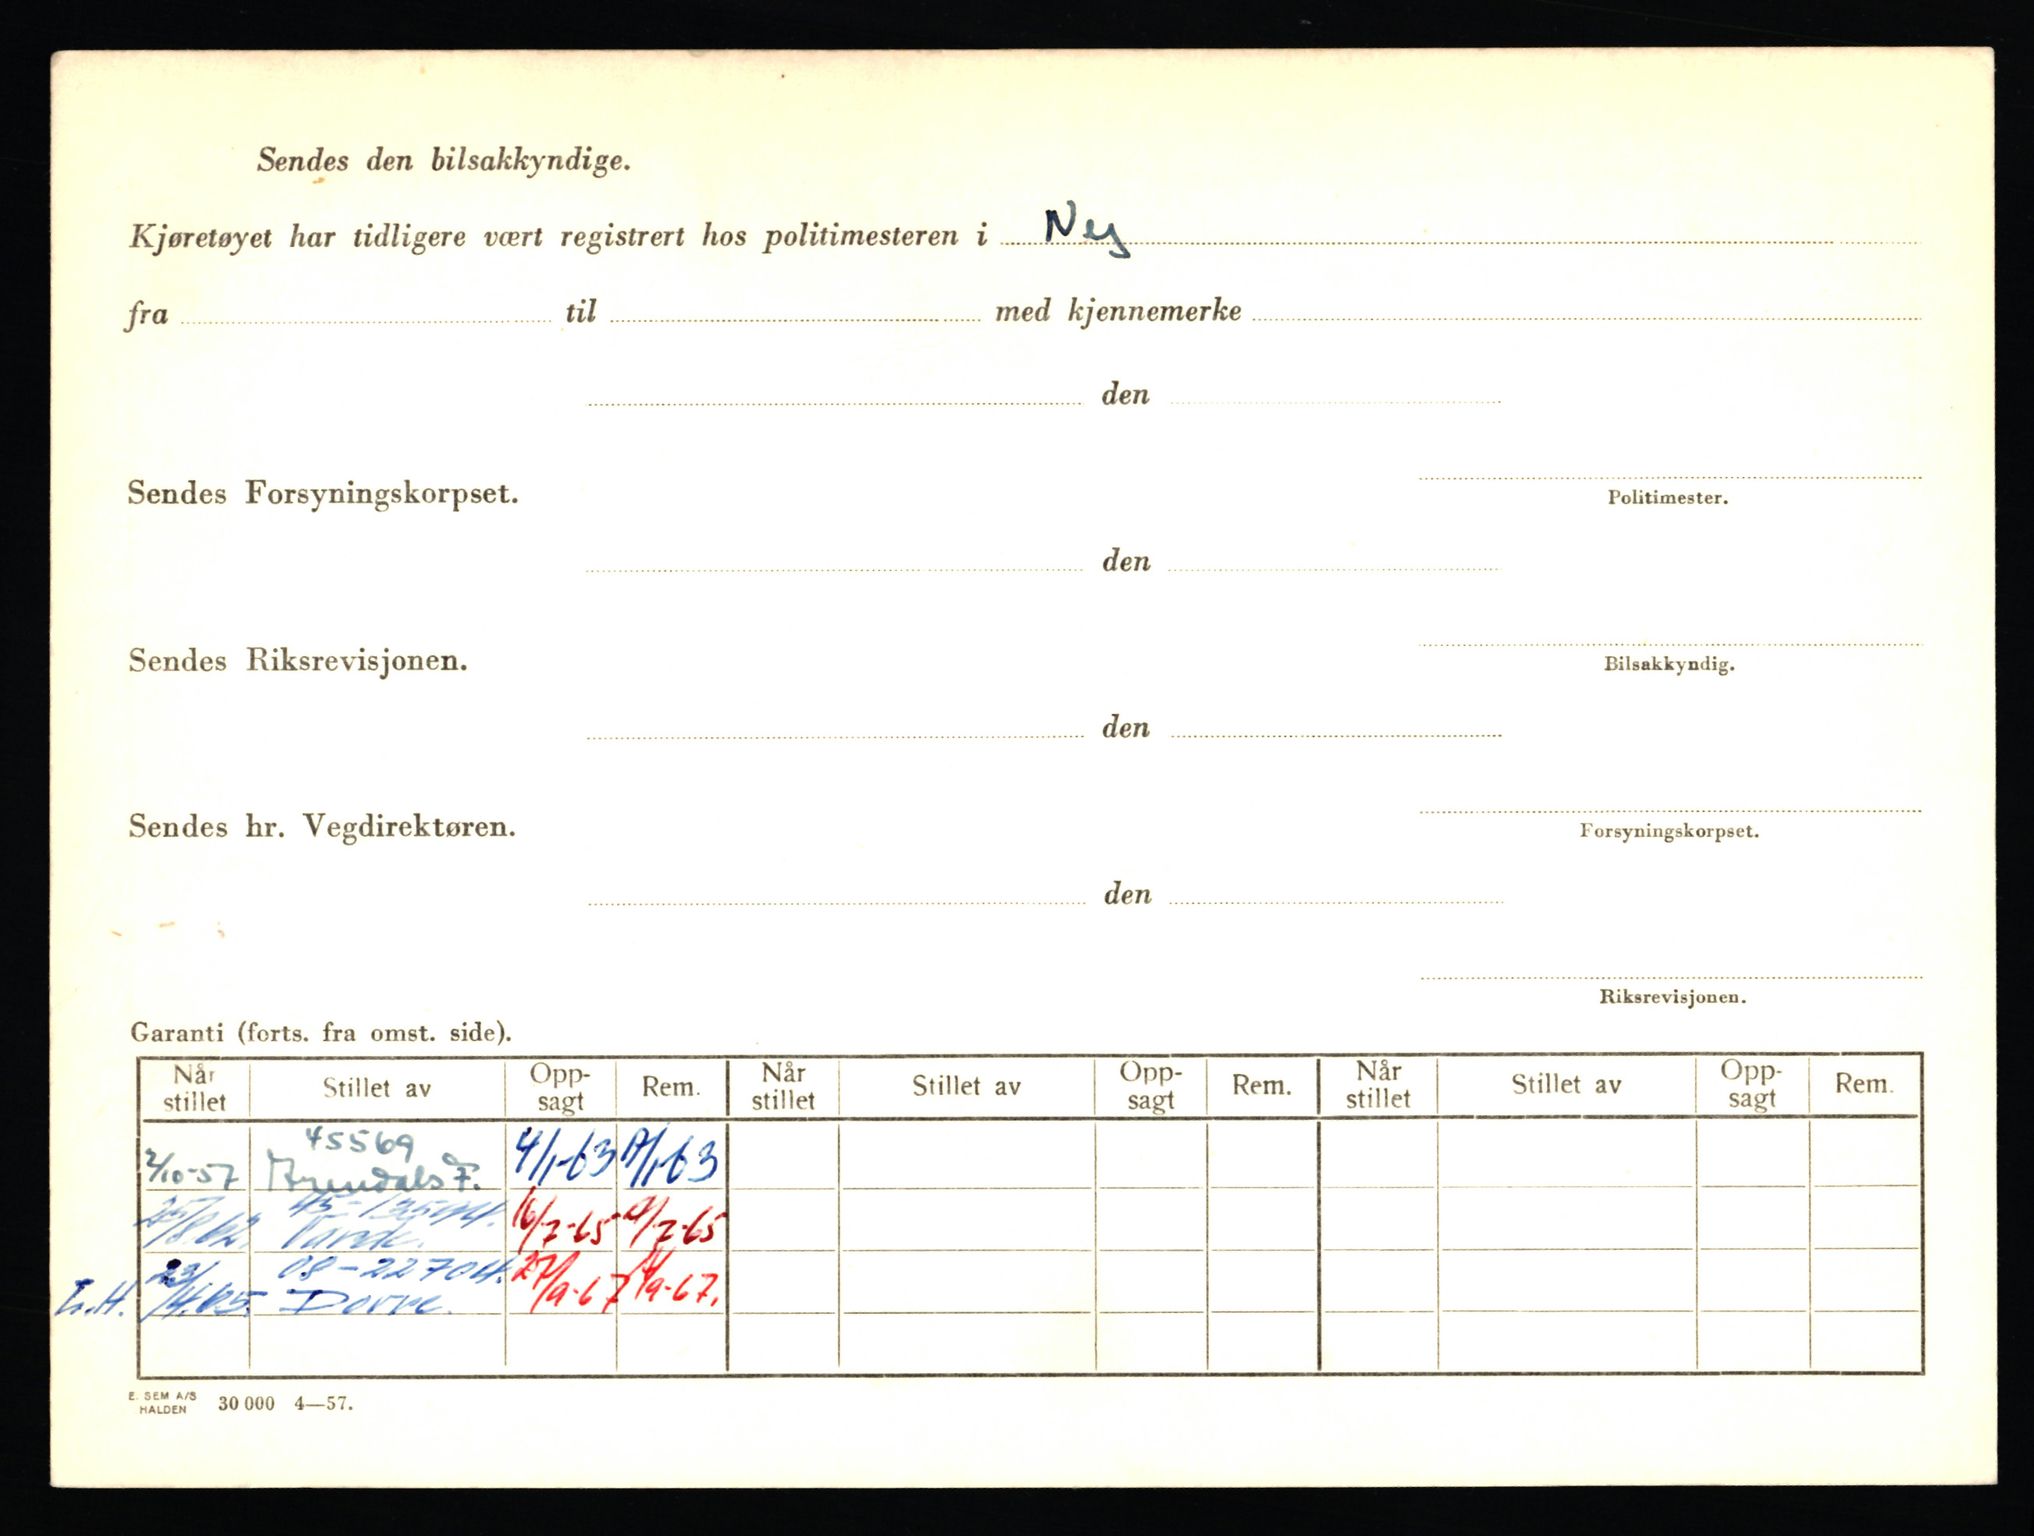 Sendes den bilsakkyndige.
Kjøretøyet har tidligere vært registrert hos politimesteren i Ney
fra til med kjennemerke
den
Sendes Forsyningskorpset.
Politimester.
den
Sendes Riksrevisjonen.
Bilsakkyndig.
den
Sendes hr. Vegdirektøren.
Forsyningskorpset.
den
Riksrevisjonen.
Garanti (forts. fra omst. side).
Når stillet Stillet av Opp-sagt Rem. Når stillet Stillet av Opp-sagt Rem. Når stillet Stillet av Opp-sagt Rem.
45569
2/10-57 Arendals F. 4/1-63 17/1-63
25/8.62. 16/7-65 /7-65
23/4.65. 08-22704. Dovre. 27/9-67 /9-67.
L.H.
E. SEM A/S
HALDEN 30 000 4—57.